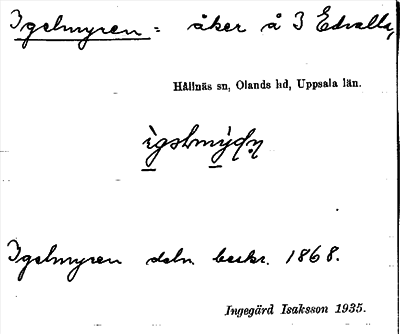 Igelmyren = åker å 3 Edvalla,
Hållnäs sn, Olands hd, Uppsala län.
Igelmyren deln. beskr. 1868.
Ingegärd Isaksson 1935.